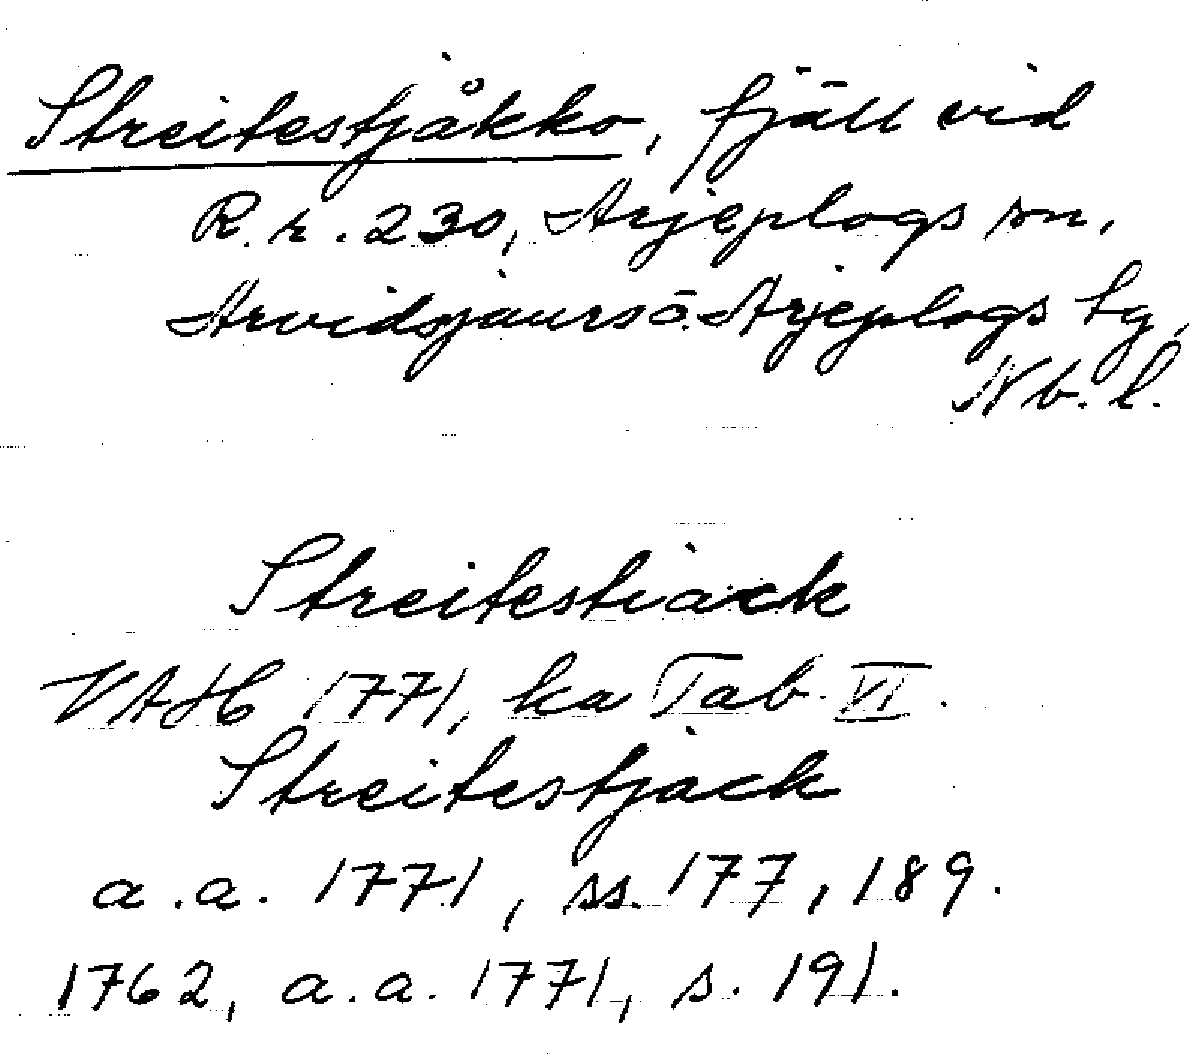 Streitestjåkko, fjäll vid
R.r. 230, Arjeplogs sn,
Arvidsjaurs o. Arjeplogs tg,
Nb. l.
Streitestiack
VAH 1771, ka Tab. VI.
Streitestjack
a.a. 1771, ss. 177, 189.
1762, a.a. 1771, s. 191.